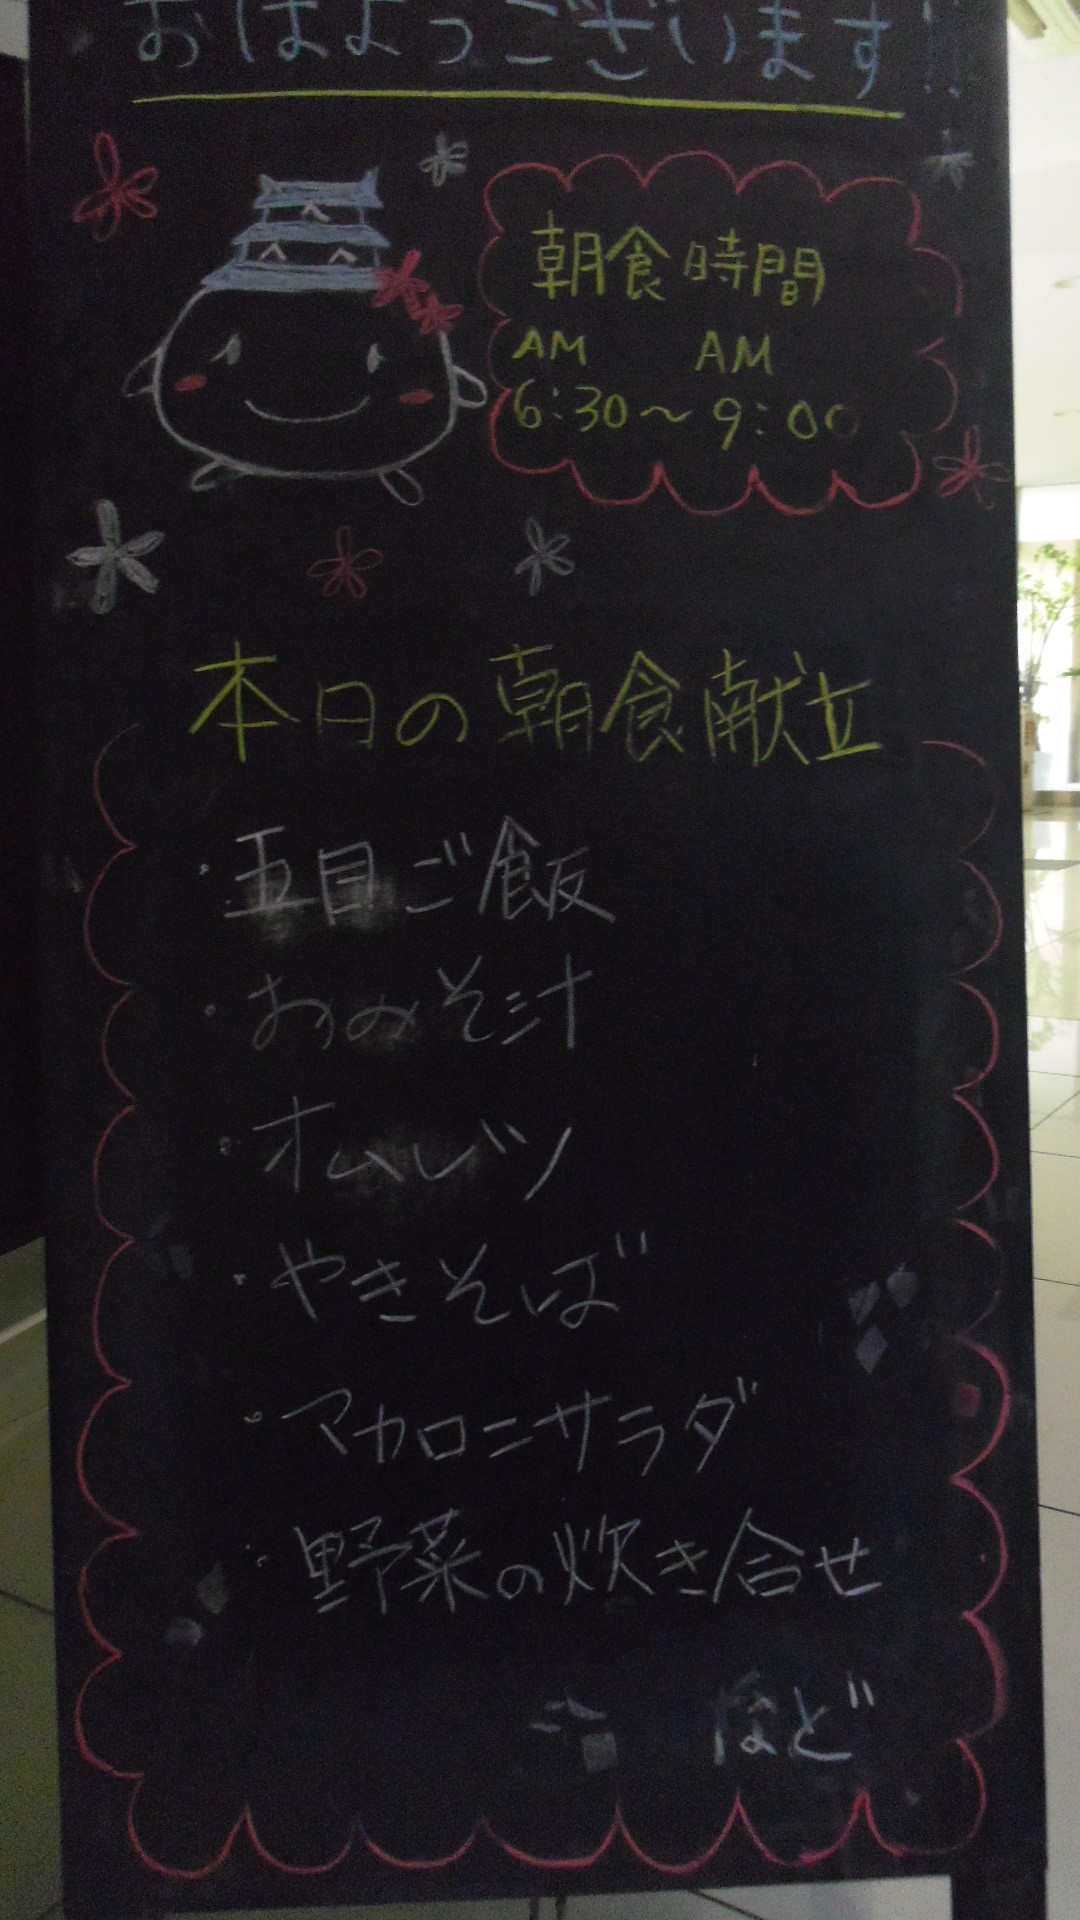 おはようございます!!
朝食時間
AM AM
6:30〜9:00
本日の朝食献立
・五目ご飯
・おみそ汁
・オムレツ
・やきそば
・マカロニサラダ
・野菜の炊き合せ
など